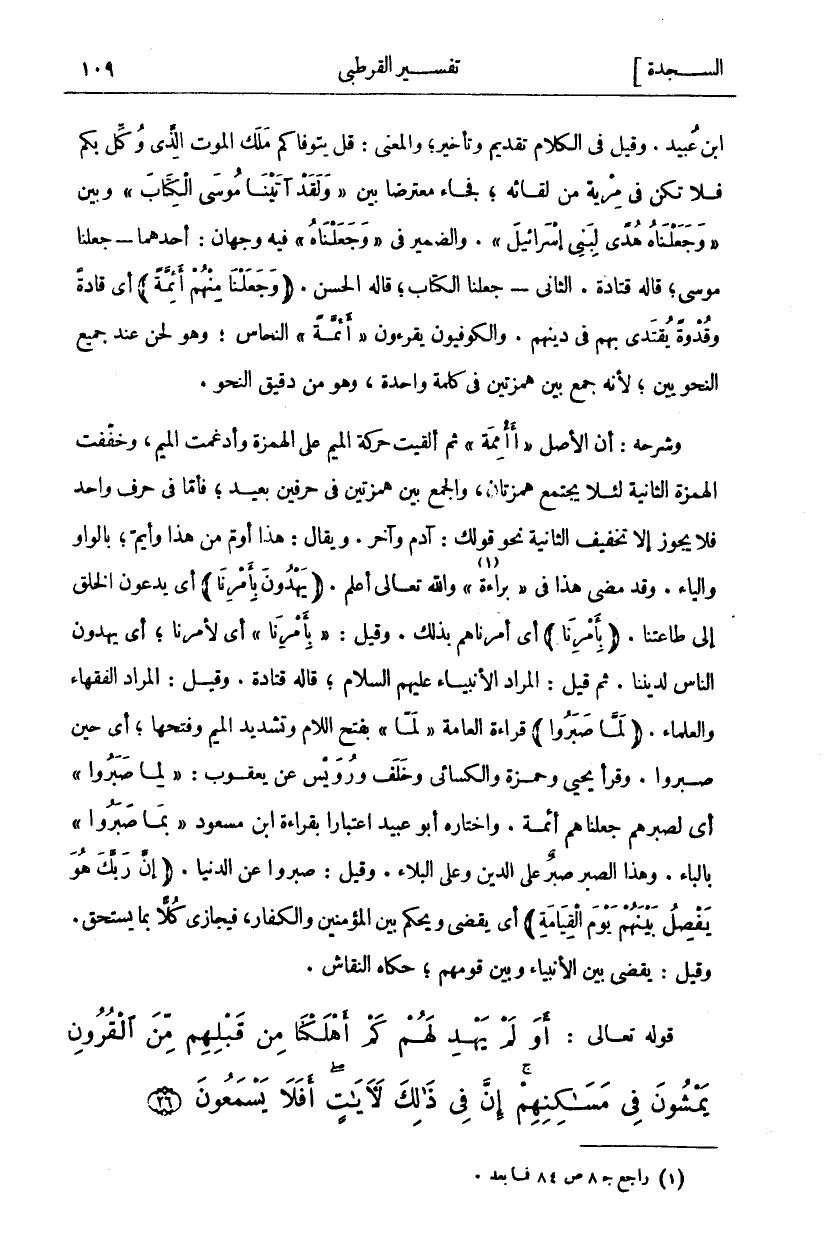 السجدة ] تفسير القرطبى ١٠٩
ابن عُبيد . وقيل فى الكلام تقديم وتأخير؛ والمعنى : قل يتوفاكم مَلَك الموت الذى وُكِّل بكم
فلا تكن فى مِرْية من لقائه ؛ فجاء معترضا بين « وَلَقَدْ آتَيْنَا مُوسَى الْكِتَابَ » وبين
« وَجَعَلْنَاهُ هُدًى لِبَنِى إِسْرَائِيلَ » . والضمير فى « وَجَعَلْنَاهُ » فيه وجهان : أحدهما — جعلنا
موسى؛ قاله قتادة . الثانى — جعلنا الكتاب؛ قاله الحسن . ﴿ وَجَعَلْنَا مِنْهُمْ أَئِمَّةً ﴾ أى قادةً
وقُدْوةً يُقتَدى بهم فى دينهم . والكوفيون يقرءون « أَئِمَّةً » النحاس ؛ وهو لحن عند جميع
النحويين ؛ لأنه جمع بين همزتين فى كلمة واحدة ، وهو من دقيق النحو .
وشرحه : أن الأصل « أَأْمِمَة » ثم ألقيت حركة الميم على الهمزة وأدغمت الميم، وخفّفت
الهمزة الثانية لئلا يجتمع همزتان، والجمع بين همزتين فى حرفين بعيد ؛ فأمّا فى حرف واحد
فلا يجوز إلا تخفيف الثانية نحو قولك : آدم وآخر . ويقال : هذا أوتم من هذا وأيمّ ؛ بالواو
والياء . وقد مضى هذا فى « براءة » (١) والله تعالى أعلم . ﴿ يَهْدُونَ بِأَمْرِنَا ﴾ أى يدعون الخلق
إلى طاعتنا . ﴿ بِأَمْرِنَا ﴾ أى أمرناهم بذلك . وقيل : « بِأَمْرِنَا » أى لأمرنا ؛ أى يهدون
الناس لديننا . ثم قيل : المراد الأنبياء عليهم السلام ؛ قاله قتادة . وقيل : المراد الفقهاء
والعلماء . ﴿ لَمَّا صَبَرُوا ﴾ قراءة العامة « لَمّا » بفتح اللام وتشديد الميم وفتحها ؛ أى حين
صبروا . وقرأ يحيى وحمزة والكسائى وخَلَف ورُوَيْس عن يعقوب : « لِما صَبَرُوا »
أى لصبرهم جعلناهم أئمة . واختاره أبو عبيد اعتبارا بقراءة ابن مسعود « بِمَا صَبَرُوا »
بالباء . وهذا الصبر صبرٌ على الدين وعلى البلاء . وقيل : صبروا عن الدنيا . ﴿ إِنَّ رَبَّكَ هُوَ
يَفْصِلُ بَيْنَهُمْ يَوْمَ الْقِيَامَةِ ﴾ أى يقضى ويحكم بين المؤمنين والكفار، فيجازى كُلًّا بما يستحق .
وقيل : يقضى بين الأنبياء وبين قومهم ؛ حكاه النقاش .
قوله تعالى : أَوَ لَمْ يَهْدِ لَهُمْ كَمْ أَهْلَكْنَا مِن قَبْلِهِم مِّنَ ٱلْقُرُونِ
يَمْشُونَ فِى مَسَـٰكِنِهِمْ ۚ إِنَّ فِى ذَٰلِكَ لَـَٔايَـٰتٍ ۖ أَفَلَا يَسْمَعُونَ ﴿٢٦﴾
(١) راجع جـ ٨ ص ٨٤ فما بعد .